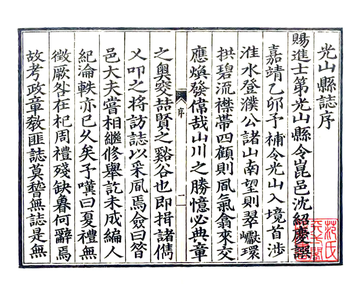 光山縣誌序
賜進士第光山縣令崑邑沈紹慶譔
嘉靖乙卯予補令光山入境首涉
淮水登濮公諸山南望則翠巘環
拱碧流襟帶四顧則風氣翕來交
應煥發偹哉山川之勝憶必典章
之奧窔喆賢之谿谷也即揖諸儁
又叩之將訪誌以采風焉僉曰昔
邑大夫嘗相繼修舉訖未成編人
紀淪軼亦已久矣予嘆曰夏禮無
徵厥咎在杞周禮殘缺曩何辭焉
故考政章教匪誌莫嵇無誌是無
序
二